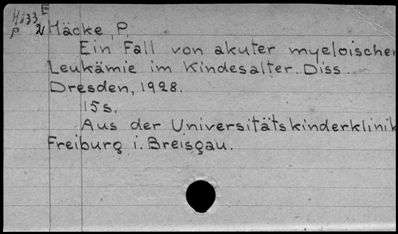 H833 E
P 2 Mäcke, P.
Ein Fall von akuter myeloischer
Leukämie im Kindesalter. Diss.
Dresden, 1928.
15s.
Aus der Universitätskinderklinik
Freiburg i. Breisgau.